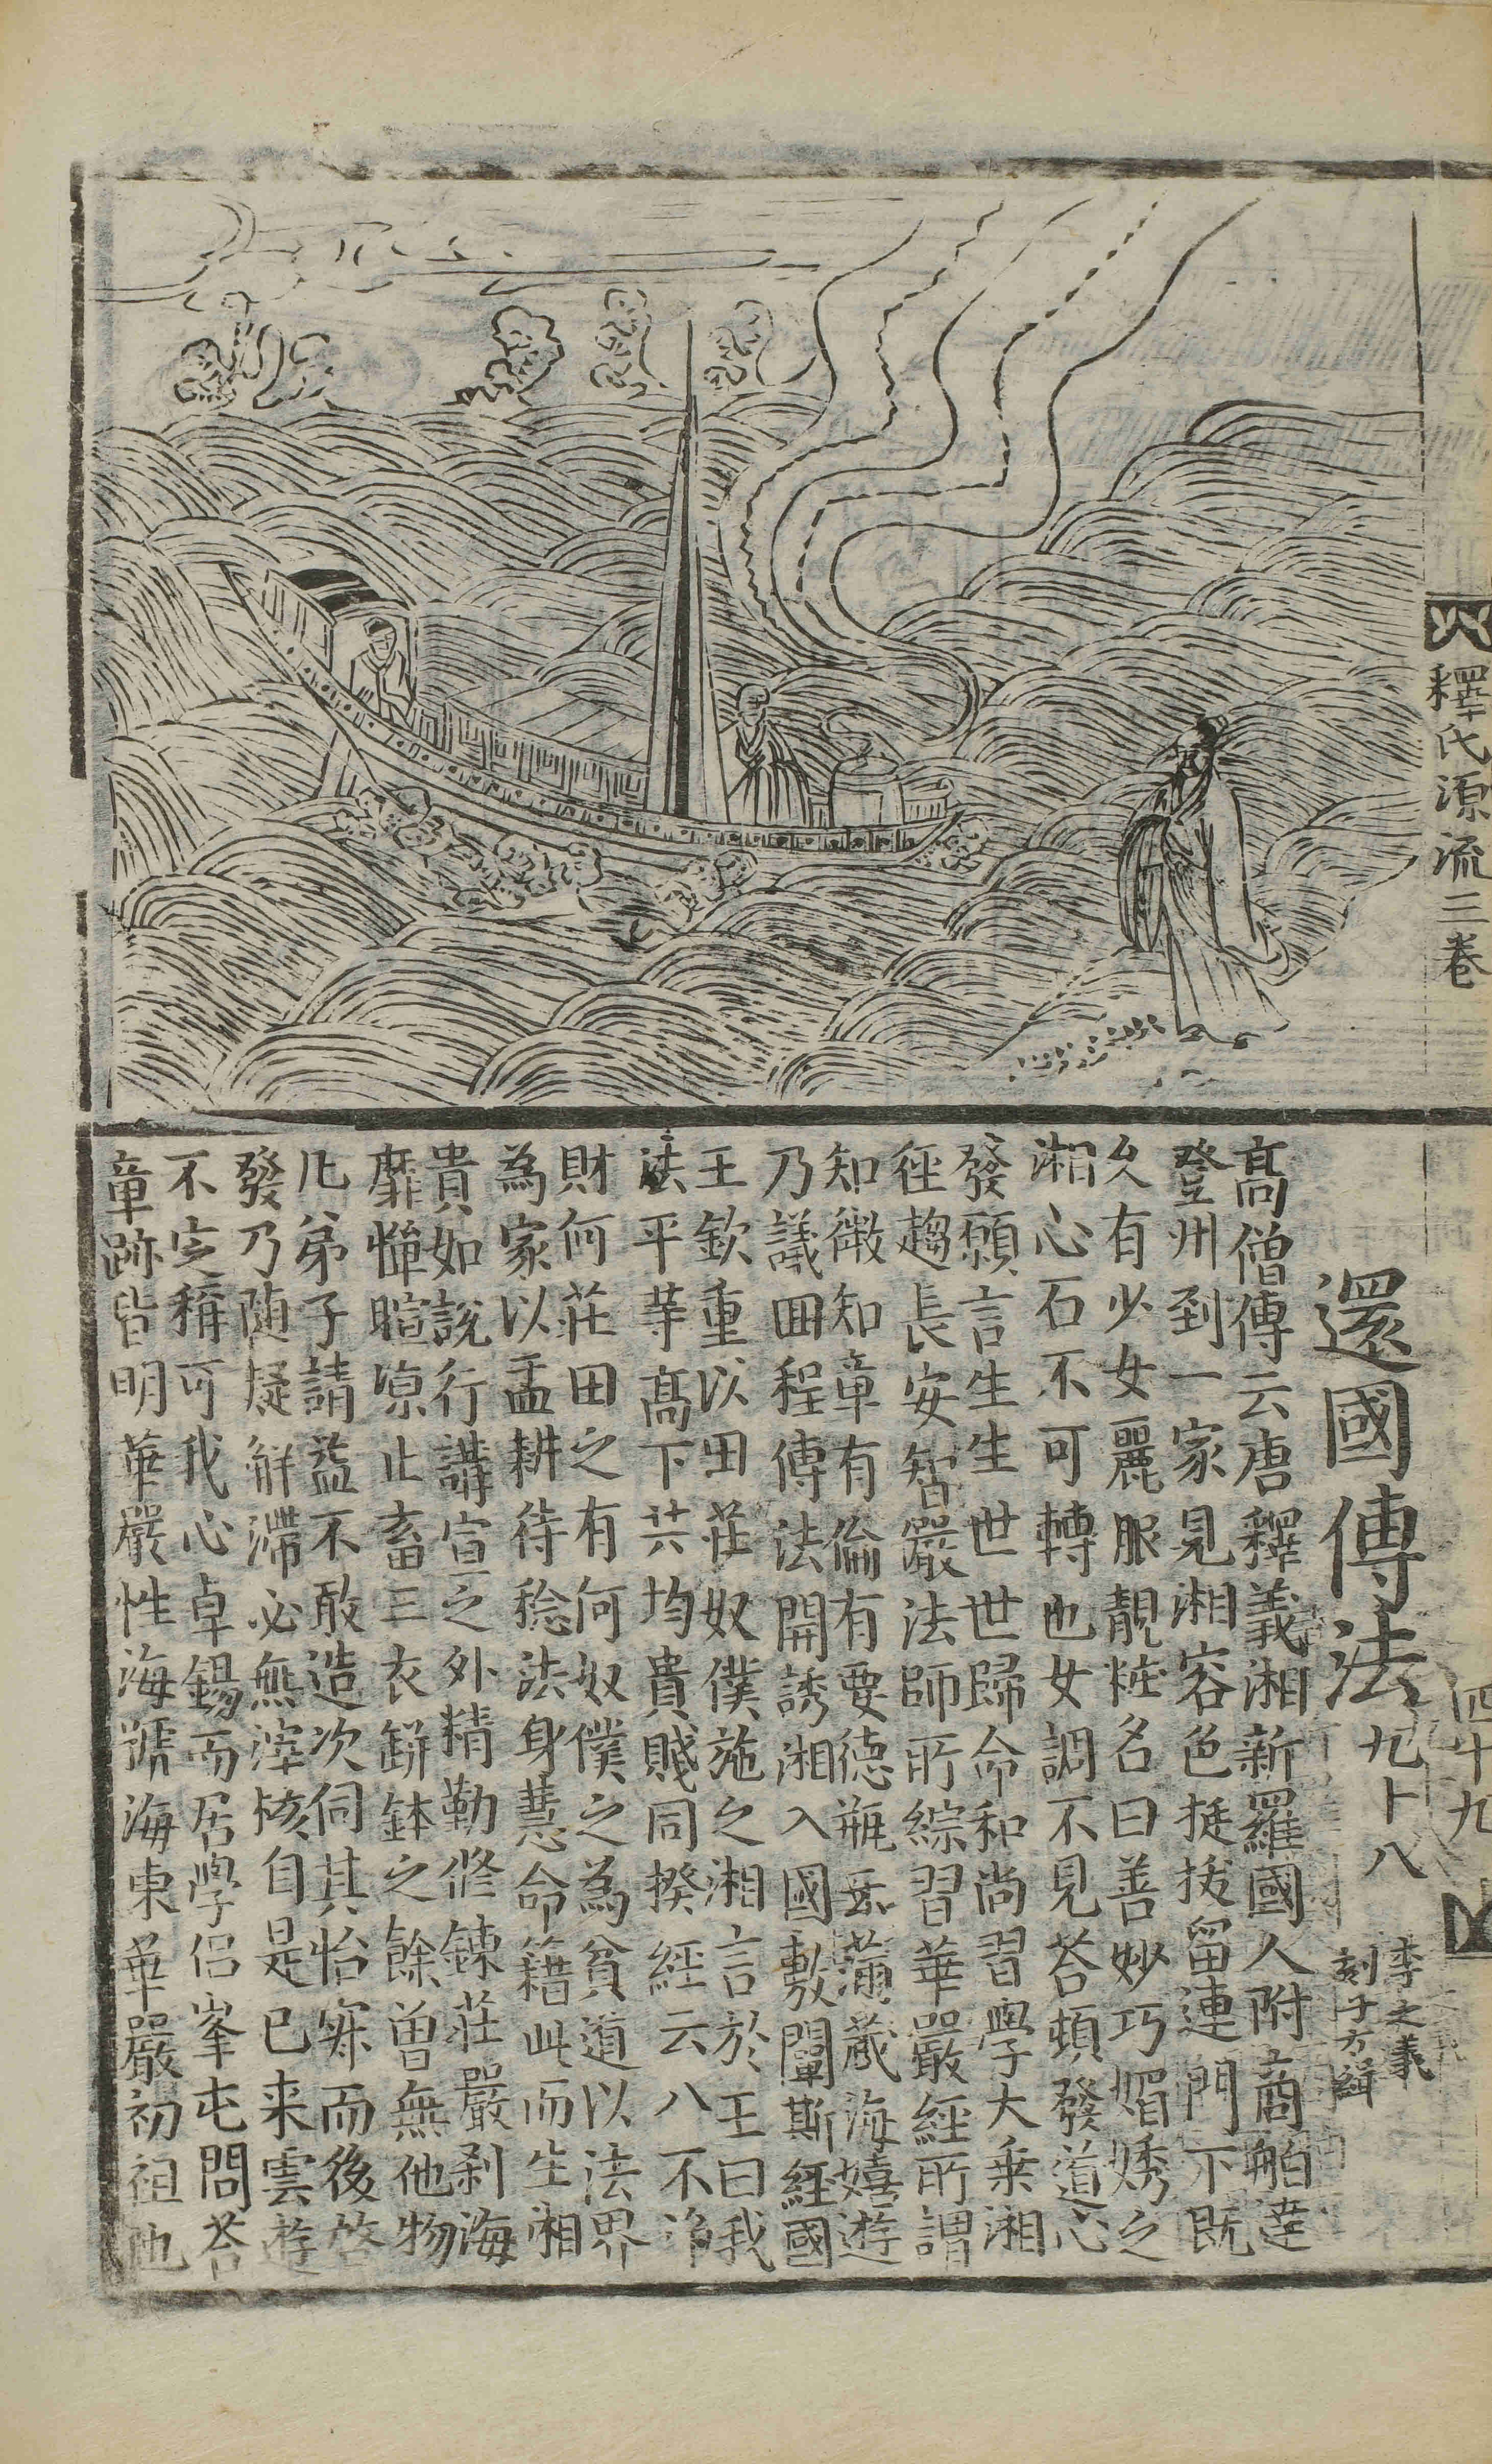 釋氏源流三卷
四十九
還國傳法 九十八
李之義
刻子方緝
高僧傳云唐釋義湘新羅國人附商舶達
登州到一家見湘容色挺拔留連門下既
久有少女麗服靚粧名曰善妙巧媚誘之
湘心石不可轉也女調不見荅頓發道心
發願言生生世世歸命和尚習學大乗湘
徑趨長安智嚴法師所綜習華嚴經所謂
知微知章有倫有要德瓶云滿蔵海嬉遊
乃議囬程傳法開誘湘入國敷闡斯經國
王欽重以田莊奴僕施之湘言於王曰我
法平等髙下共均貴賤同揆經云八不淨
財何莊田之有何奴僕之為貧道以法界
為家以盂耕待稔法身慧命籍此而生湘
貴如說行講宣之外精勤修鍊莊嚴刹海
靡憚暄凉止畜三衣缾鉢之餘曾無他物
凡弟子請益不敢造次伺其怡寂而後啓
發乃随疑解滯必無滓核自是已来雲遊
不定稱可我心卓錫而居學侣峯屯問荅
章跡皆明華嚴性海號海東華嚴初祖也